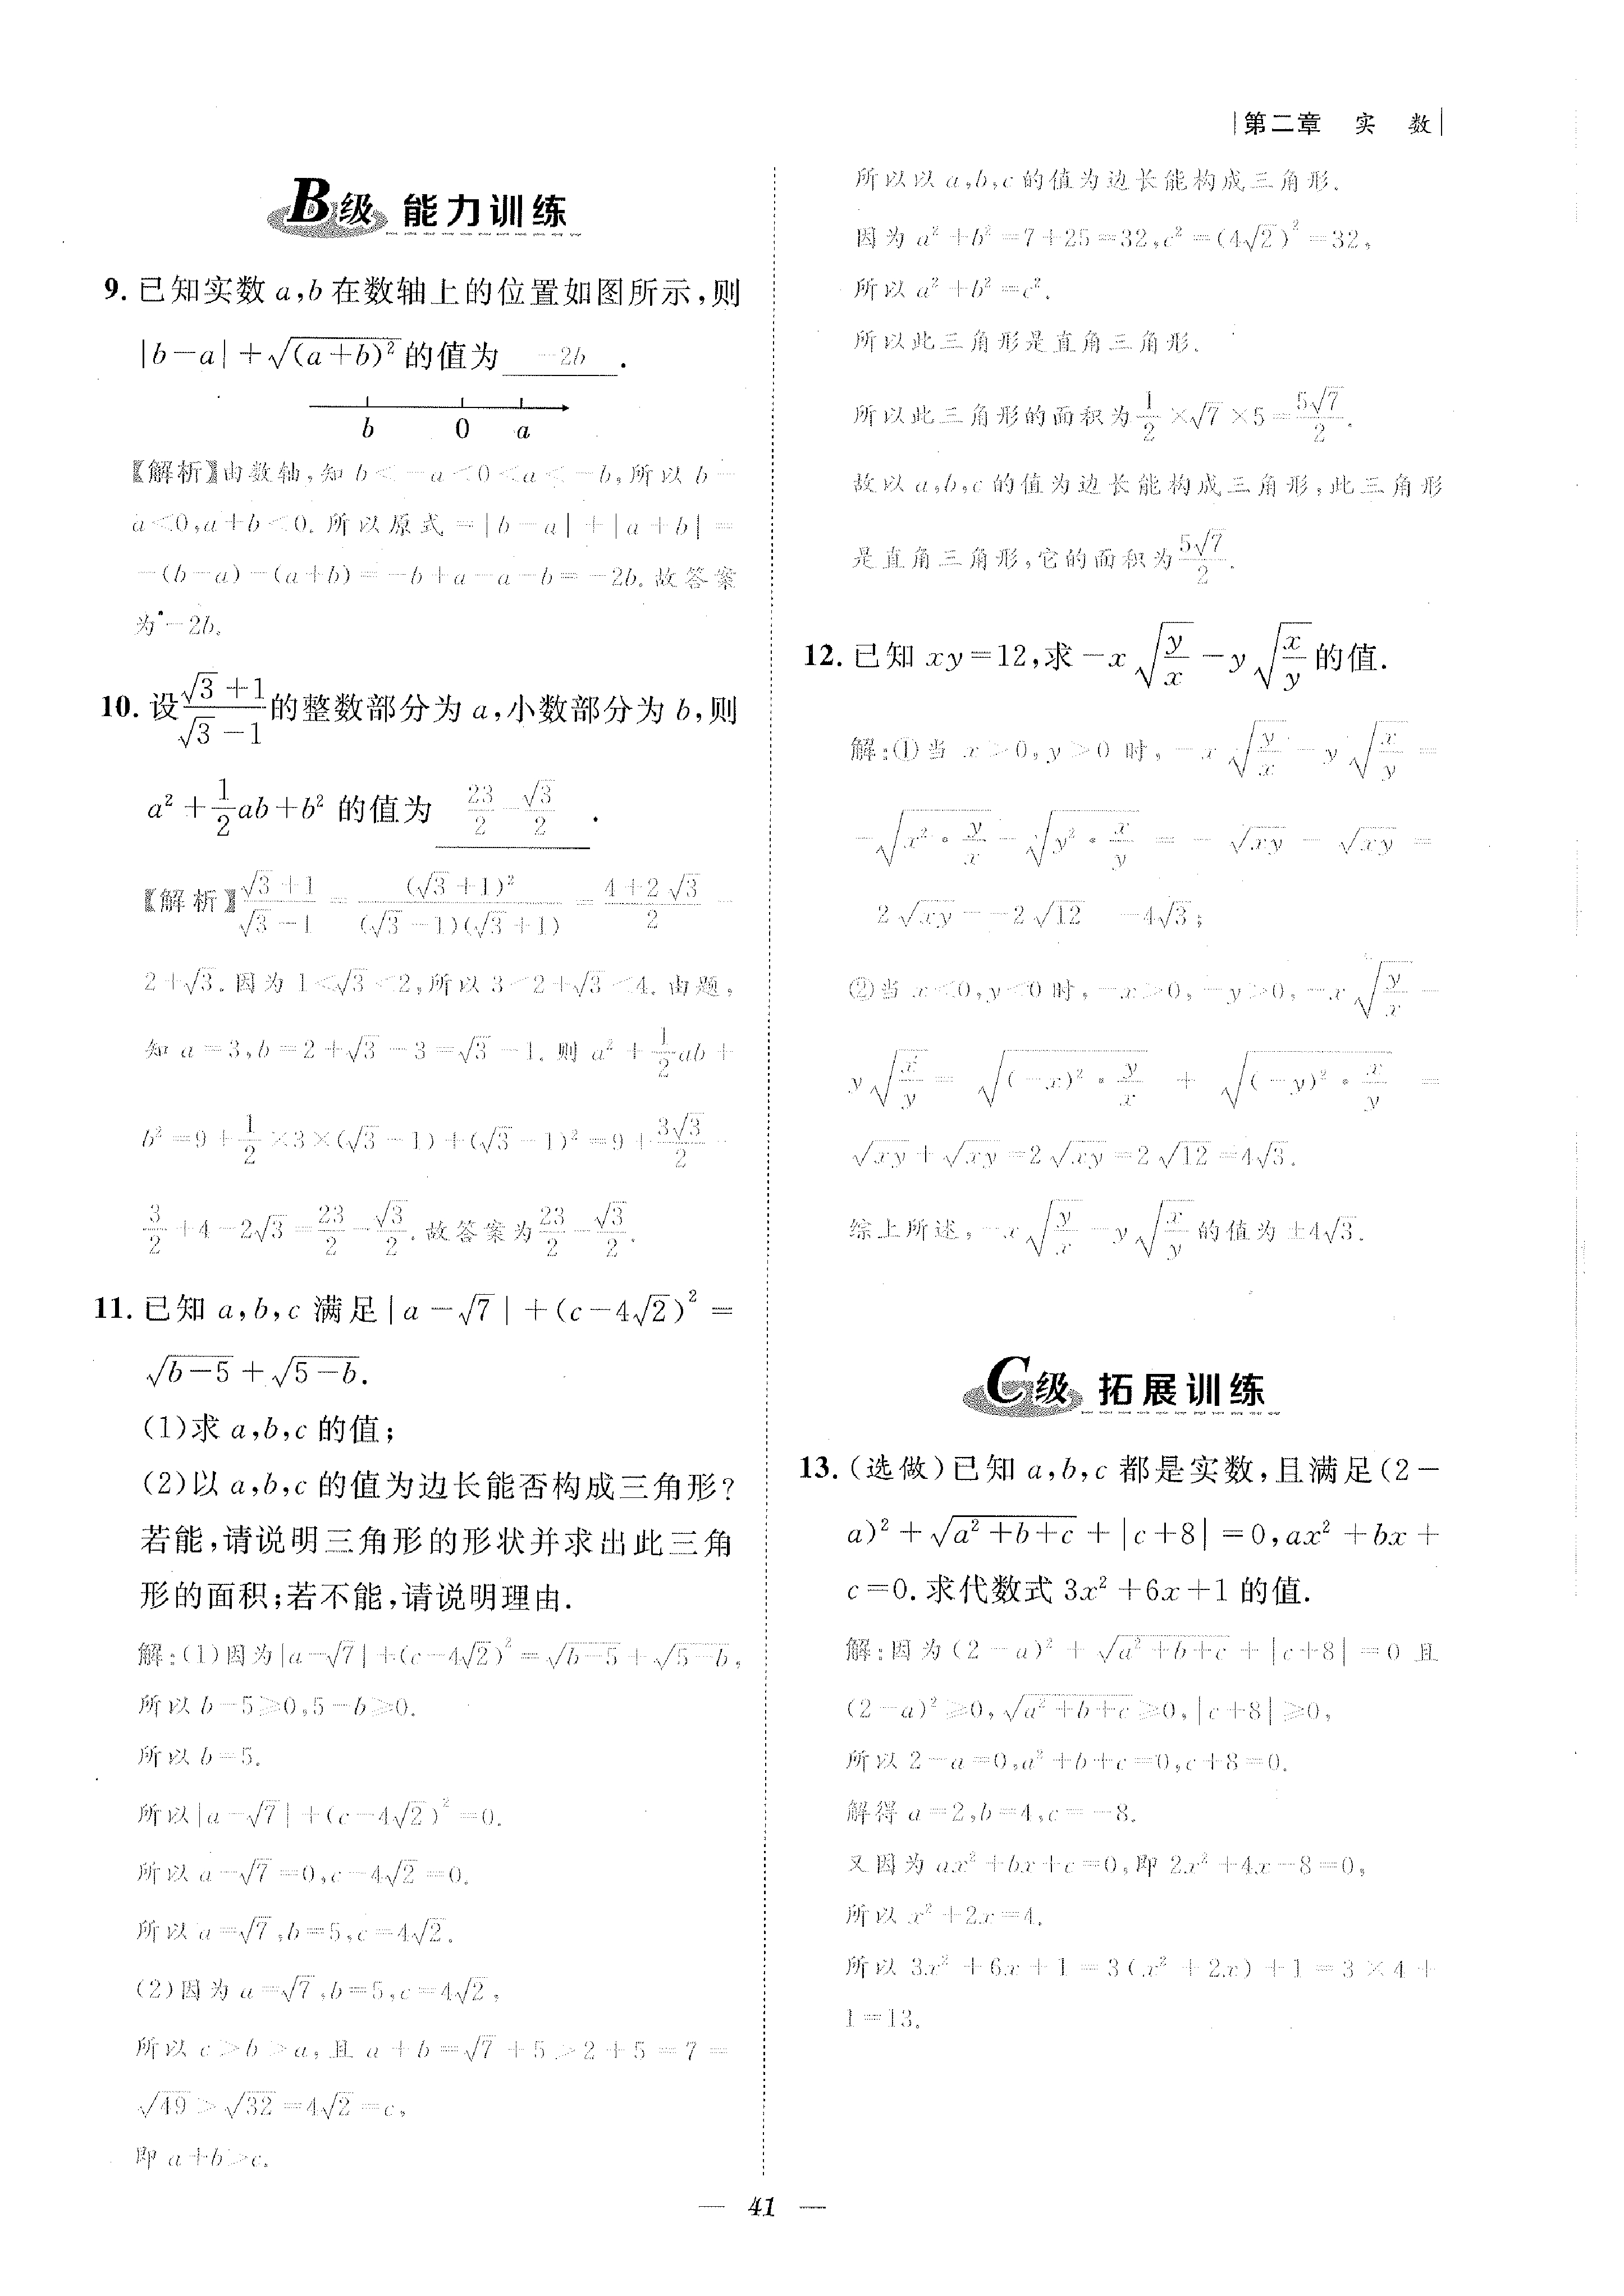 第二章 实 数
B级 能力训练
9. 已知实数 a,b 在数轴上的位置如图所示,则
|b-a|+√(a+b)² 的值为 -2b .
b 0 a
【解析】由数轴,知 b<-a<0<a<-b,所以 b-
a<0,a+b<0. 所以原式=|b-a|+|a+b|=
-(b-a)-(a+b)=-b+a-a-b=-2b. 故答案
为-2b.
10. 设 (√3+1)/(√3-1) 的整数部分为 a,小数部分为 b,则
a²+1/2ab+b² 的值为 23/2-√3/2 .
【解析】(√3+1)/(√3-1)=(√3+1)²/((√3-1)(√3+1))=(4+2√3)/2=
2+√3. 因为 1<√3<2,所以 3<2+√3<4. 由题,
知 a=3,b=2+√3-3=√3-1. 则 a²+1/2ab+
b²=9+1/2×3×(√3-1)+(√3-1)²=9+3√3/2-
3/2+4-2√3=23/2-√3/2. 故答案为 23/2-√3/2.
11. 已知 a,b,c 满足|a-√7|+(c-4√2)²=
√(b-5)+√(5-b).
(1)求 a,b,c 的值;
(2)以 a,b,c 的值为边长能否构成三角形?
若能,请说明三角形的形状并求出此三角
形的面积;若不能,请说明理由.
解:(1)因为|a-√7|+(c-4√2)²=√(b-5)+√(5-b),
所以 b-5≥0,5-b≥0.
所以 b=5.
所以|a-√7|+(c-4√2)²=0.
所以 a-√7=0,c-4√2=0.
所以 a=√7,b=5,c=4√2.
(2)因为 a=√7,b=5,c=4√2,
所以 c>b>a,且 a+b=√7+5>2+5=7=
√49>√32=4√2=c,
即 a+b>c.
所以以 a,b,c 的值为边长能构成三角形.
因为 a²+b²=7+25=32,c²=(4√2)²=32,
所以 a²+b²=c².
所以此三角形是直角三角形.
所以此三角形的面积为 1/2×√7×5=5√7/2.
故以 a,b,c 的值为边长能构成三角形,此三角形
是直角三角形,它的面积为 5√7/2.
12. 已知 xy=12,求 -x√(y/x)-y√(x/y) 的值.
解:①当 x>0,y>0 时,-x√(y/x)-y√(x/y)=
-√(x²·y/x)-√(y²·x/y)=-√xy-√xy=
-2√xy=-2√12=-4√3;
②当 x<0,y<0 时,-x>0,-y>0,-x√(y/x)-
y√(x/y)=√((-x)²·y/x)+√((-y)²·x/y)=
√xy+√xy=2√xy=2√12=4√3.
综上所述,-x√(y/x)-y√(x/y) 的值为 ±4√3.
C级 拓展训练
13. (选做)已知 a,b,c 都是实数,且满足(2-
a)²+√(a²+b+c)+|c+8|=0,ax²+bx+
c=0. 求代数式 3x²+6x+1 的值.
解:因为(2-a)²+√(a²+b+c)+|c+8|=0 且
(2-a)²≥0,√(a²+b+c)≥0,|c+8|≥0,
所以 2-a=0,a²+b+c=0,c+8=0.
解得 a=2,b=4,c=-8.
又因为 ax²+bx+c=0,即 2x²+4x-8=0,
所以 x²+2x=4.
所以 3x²+6x+1=3(x²+2x)+1=3×4+
1=13.
— 41 —